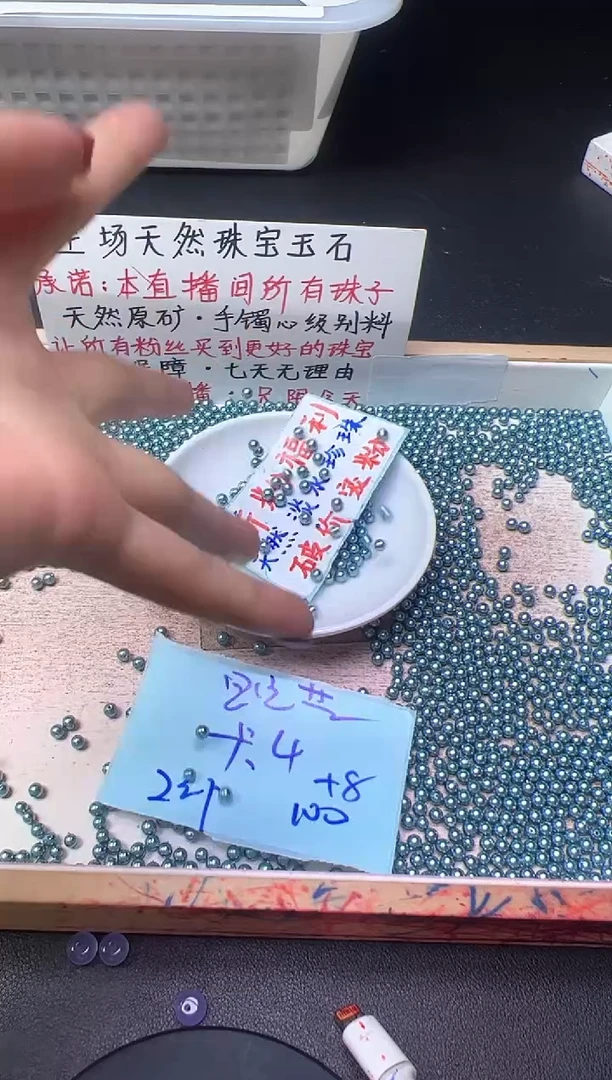 场天然珠宝玉石
承诺:本直播间所有珠子
天然原矿·手镯心级别料
让所有粉丝买到更好的珠宝
障·七天无理由
福利
天然淡水珍珠
破价宠粉
卡4
+8
100